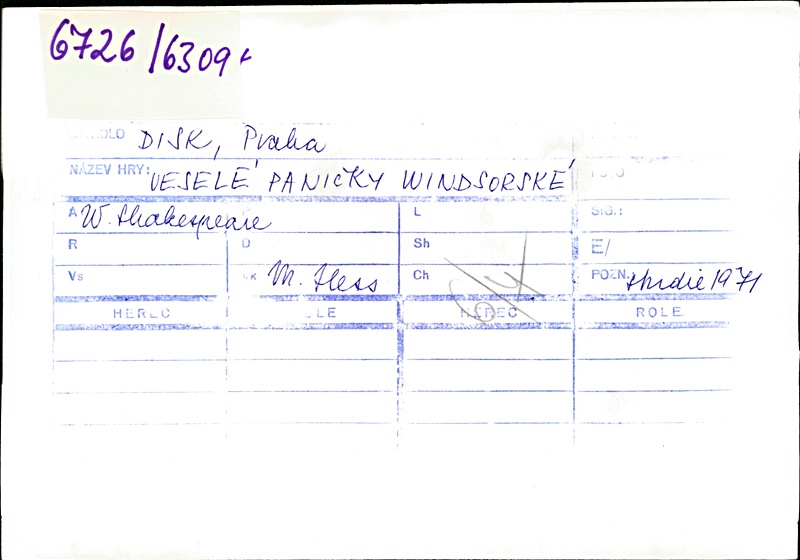 6726/6309+
DIVADLO DISK, Praha
NÁZEV HRY: VESELÉ PANIČKY WINDSORSKÉ FOTO
A W. Shakespeare L SIG.:
R D Sh E/
Vs VK M. Hess Ch POZN. studie 1971
HEREC ROLE HEREC ROLE